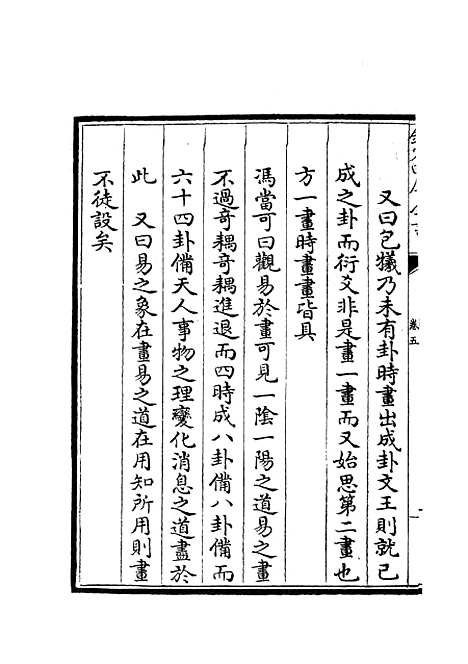 又曰包犧乃未有卦時畫出成卦文王則就已
成之卦而衍爻非是畫一畫而又始思第二畫也
方一畫時畫畫皆具
馮當可曰觀易於畫可見一陰一陽之道易之畫
不過奇耦奇耦進退而四時成八卦備八卦備而
六十四卦備天人事物之理變化消息之道盡於
此 又曰易之象在畫易之道在用知所用則畫
不徒設矣
卷五